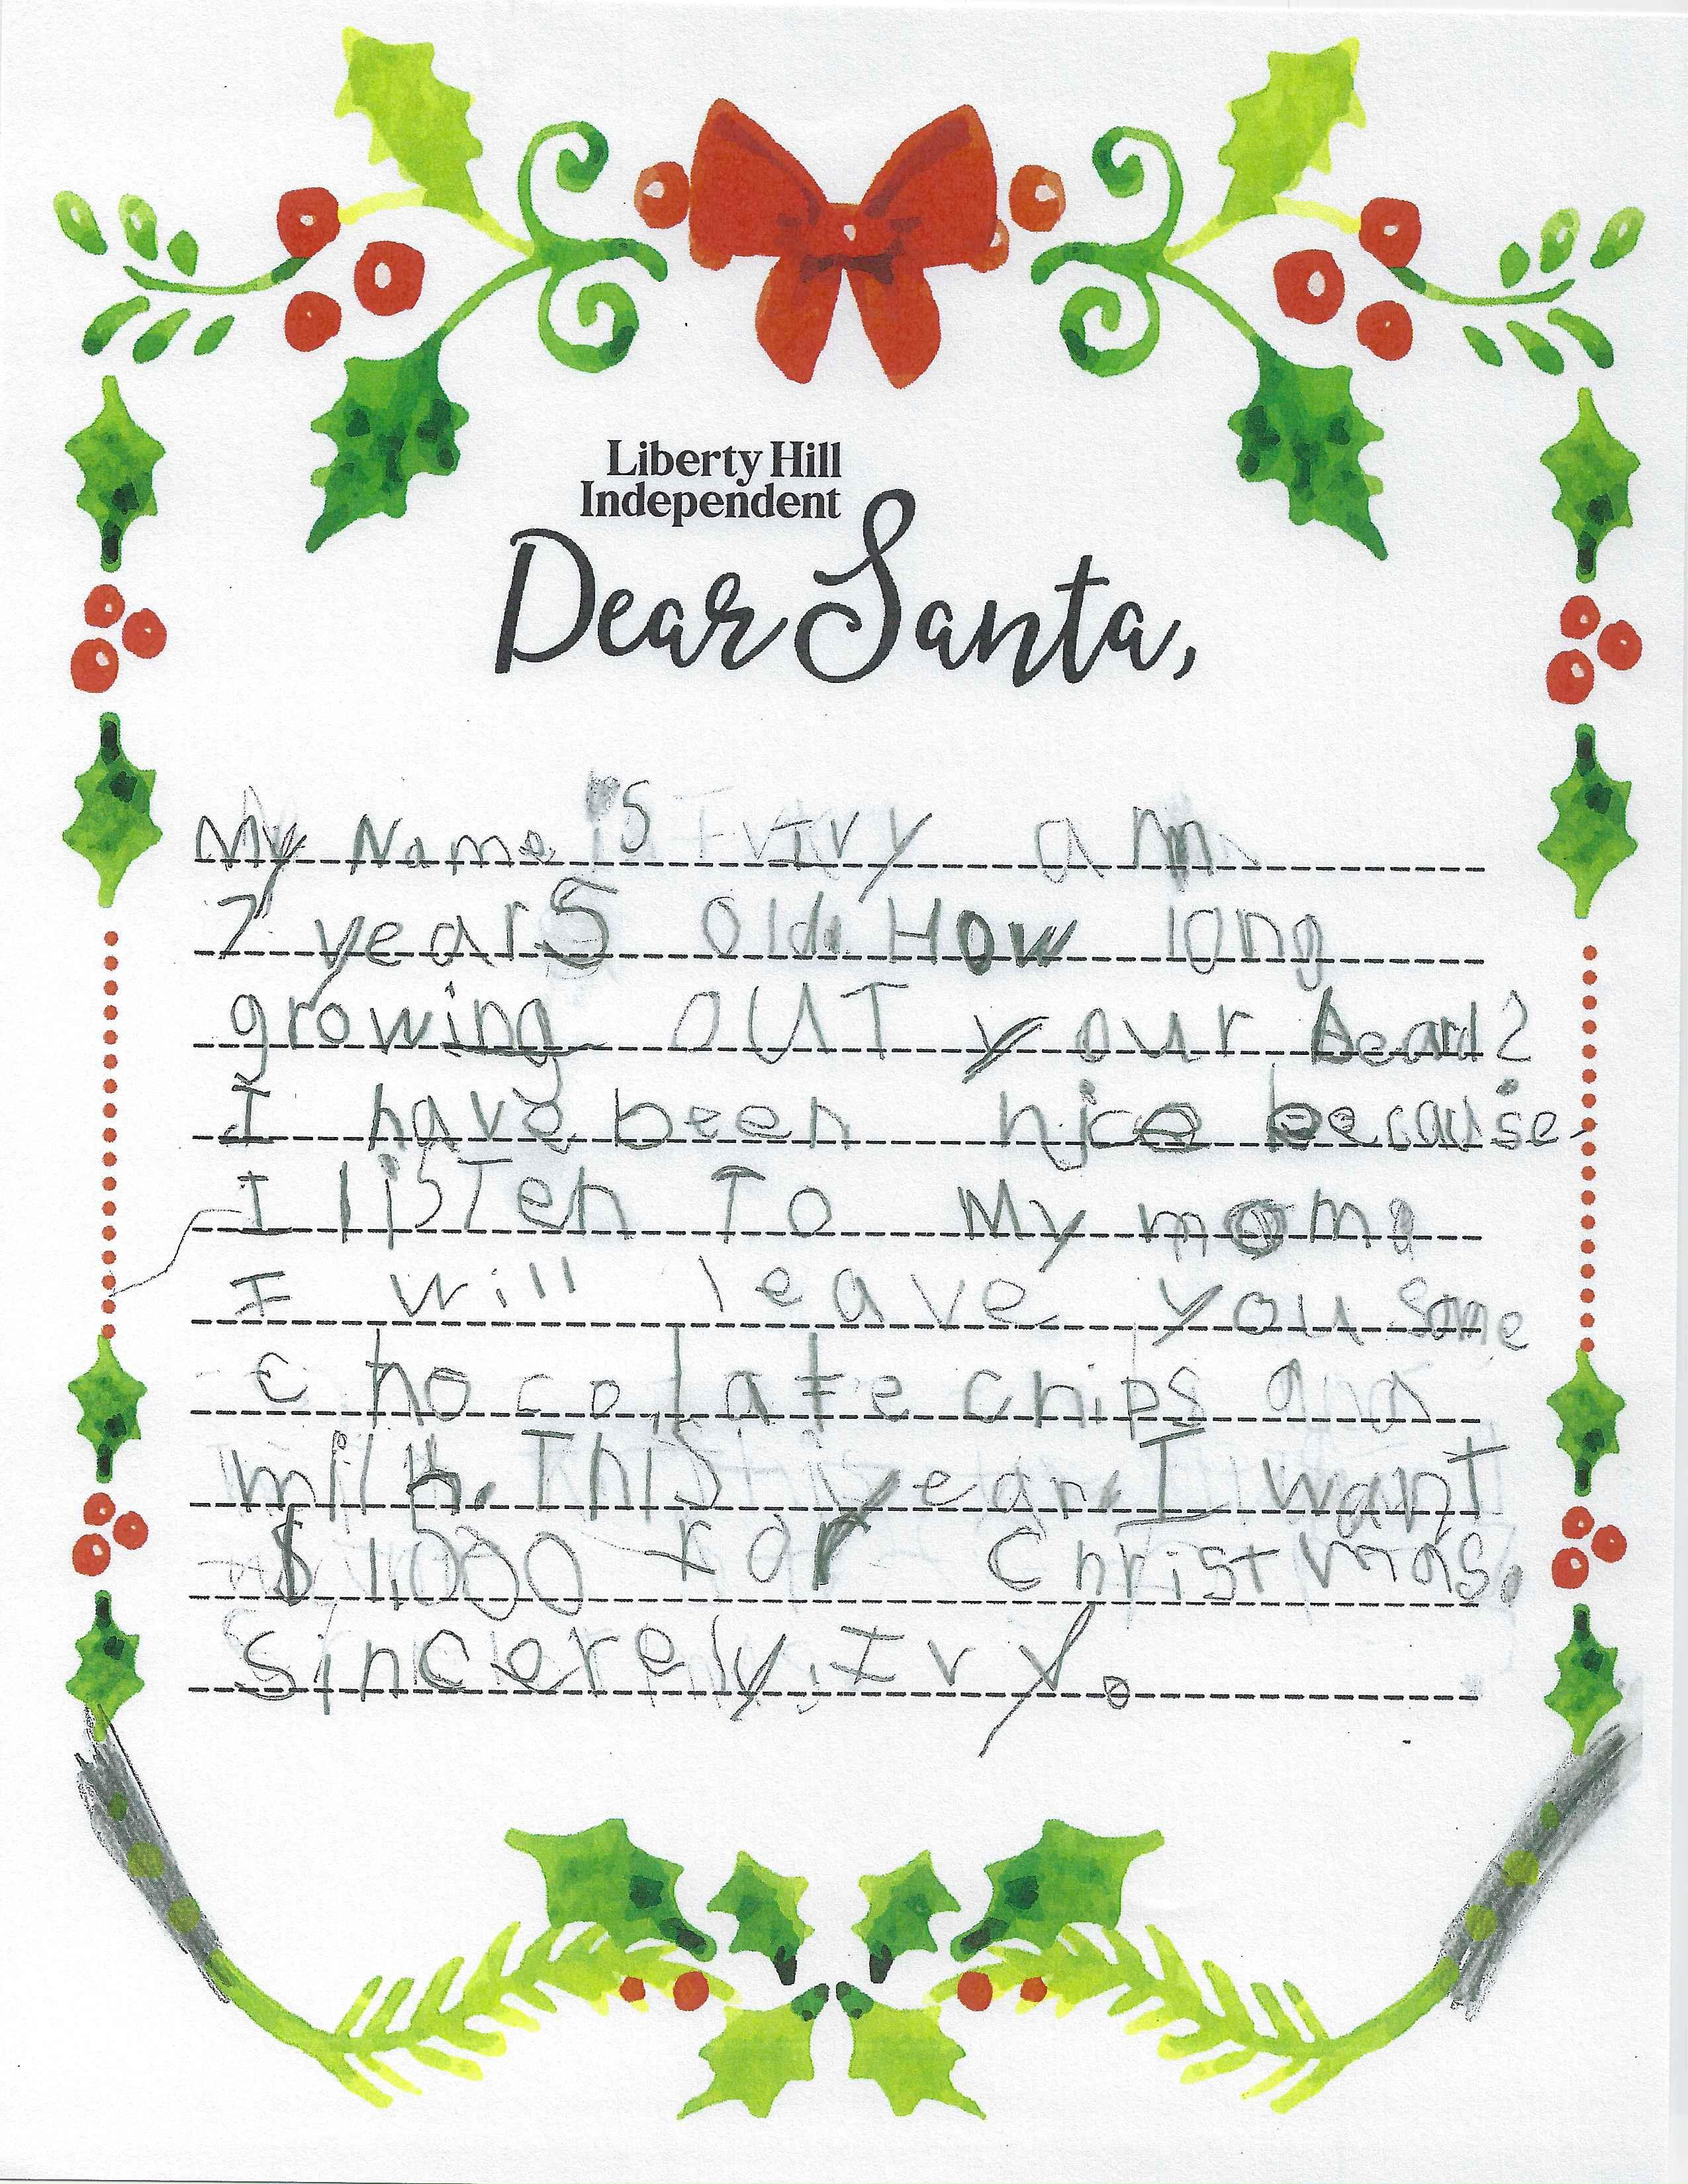 Liberty Hill
Independent
Dear Santa,
My Name is Ivy am
7 years old. How long
growing OUT your beard?
I have been nice because
I lisTen To My moma
I will leave you some
chocolate chips and
milk. This year I wanT
$1,000 for Christmas.
Sincerely, Ivy.